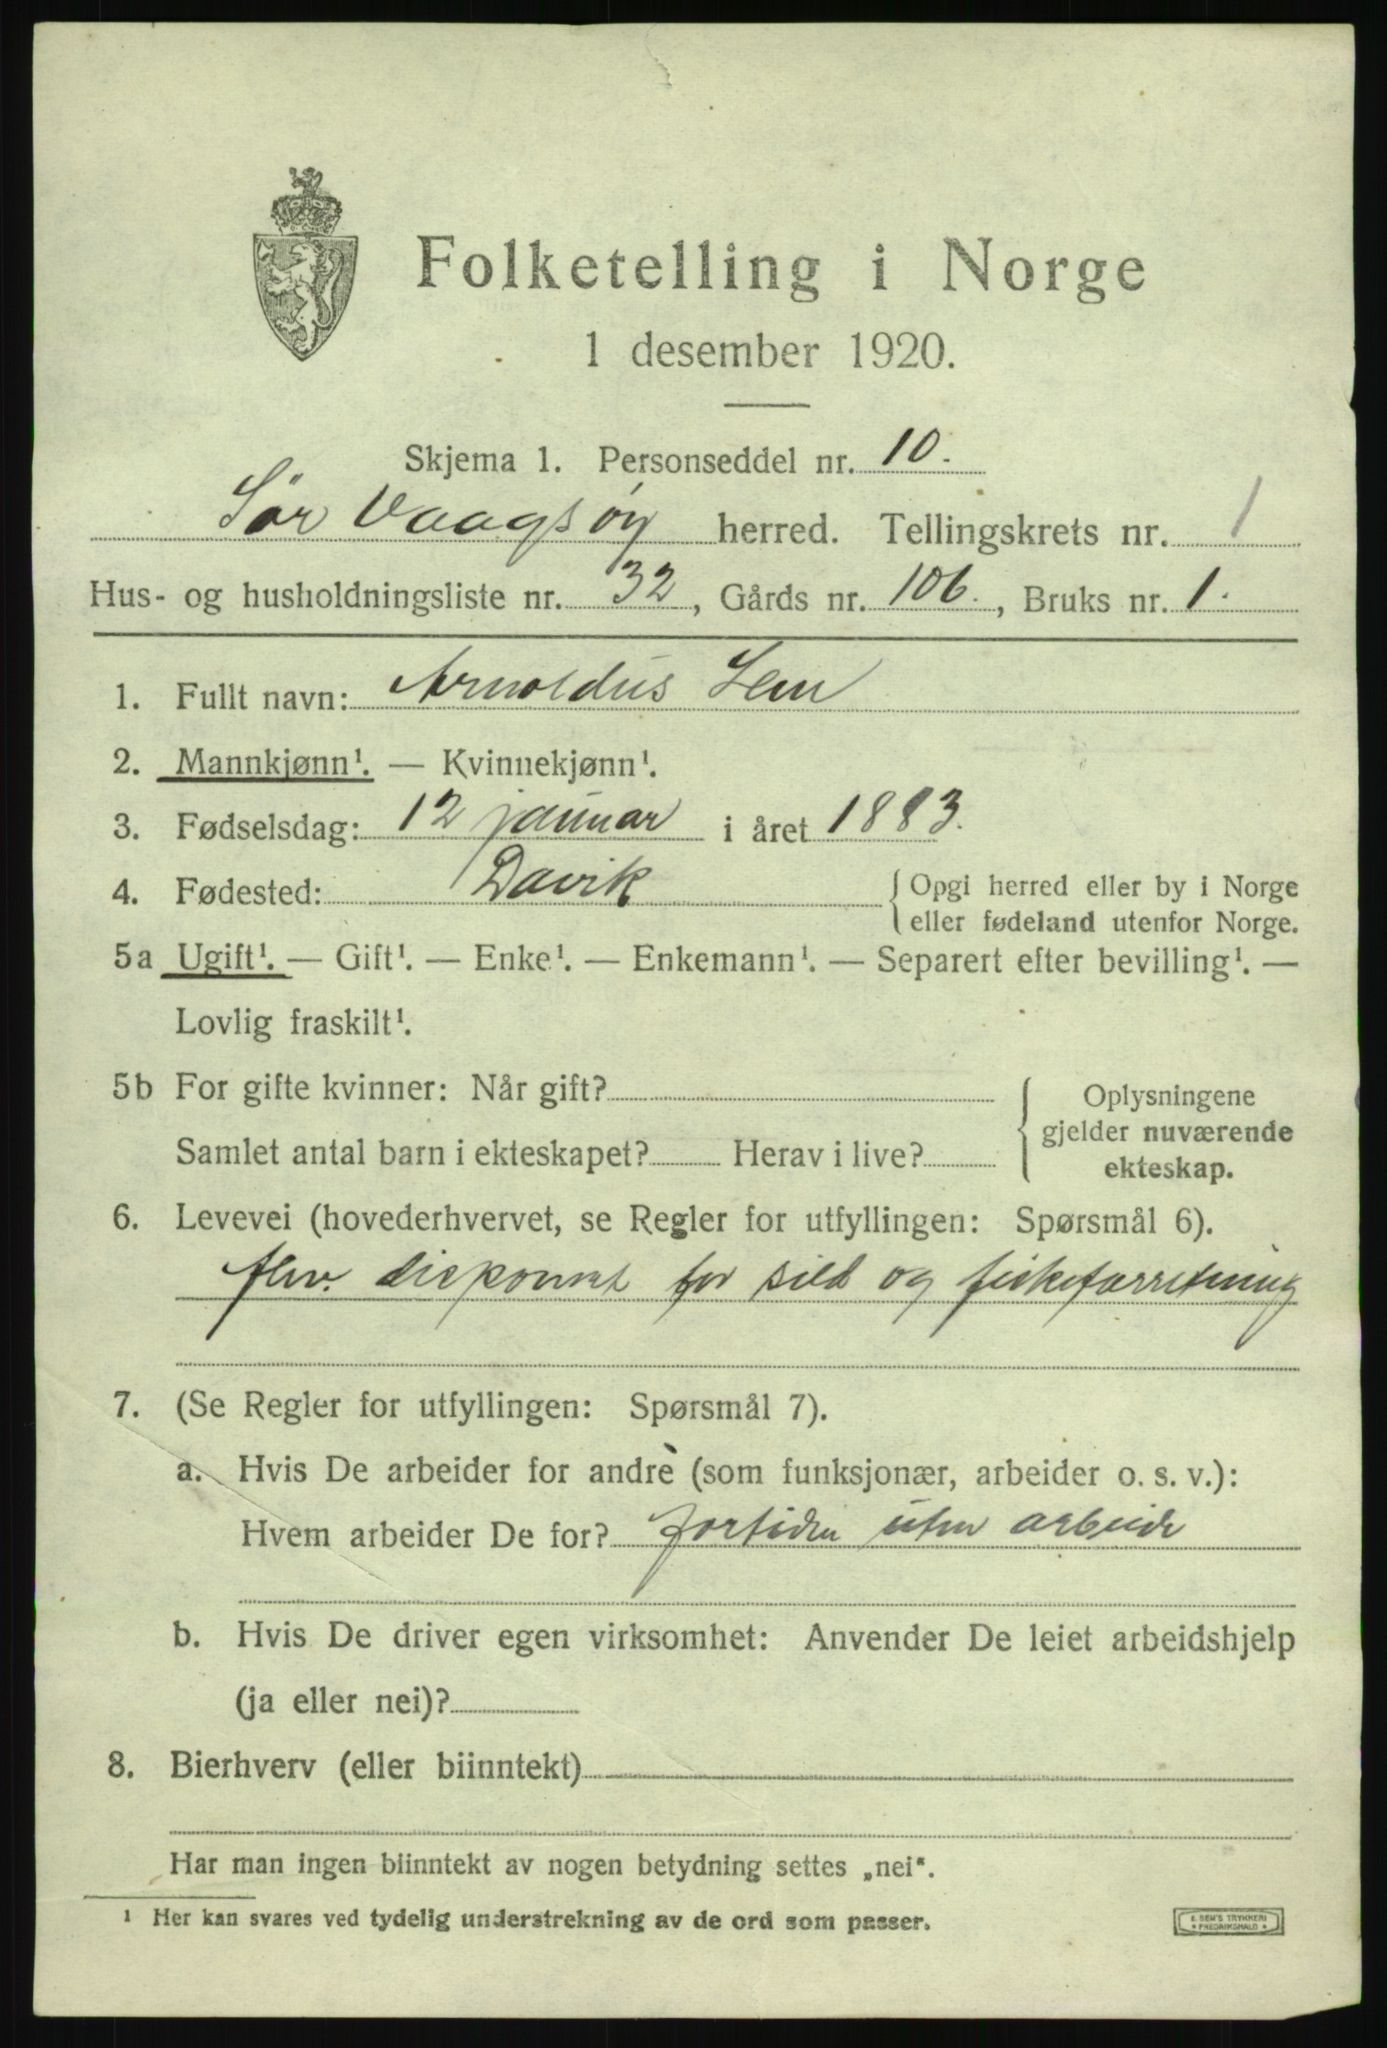 Folketelling i Norge
1 desember 1920.
Skjema 1. Personseddel nr. 10.
Sør Vaagsøy herred. Tellingskrets nr. 1
Hus- og husholdningsliste nr. 32, Gårds nr. 106., Bruks nr. 1.
1. Fullt navn: Arnoldus Lem
2. Mannkjønn¹. — Kvinnekjønn¹.
3. Fødselsdag: 12 januar i året 1883.
4. Fødested: Davik { Opgi herred eller by i Norge
eller fødeland utenfor Norge.
5a Ugift¹. — Gift¹. — Enke¹. — Enkemann¹. — Separert efter bevilling¹. —
Lovlig fraskilt¹.
5b For gifte kvinner: Når gift? { Oplysningene
gjelder nuværende
Samlet antal barn i ekteskapet? Herav i live? ekteskap.
6. Levevei (hovederhvervet, se Regler for utfyllingen: Spørsmål 6).
disponent for sild og fiskeforretning
7. (Se Regler for utfyllingen: Spørsmål 7).
a. Hvis De arbeider for andre (som funksjonær, arbeider o. s. v.):
Hvem arbeider De for? fortiden uten arbeide
b. Hvis De driver egen virksomhet: Anvender De leiet arbeidshjelp
(ja eller nei)?
8. Bierhverv (eller biinntekt)
Har man ingen biinntekt av nogen betydning settes „nei".
¹ Her kan svares ved tydelig understrekning av de ord som passer.
E. SEM'S TRYKKERI
* FREDRIKSHALD *